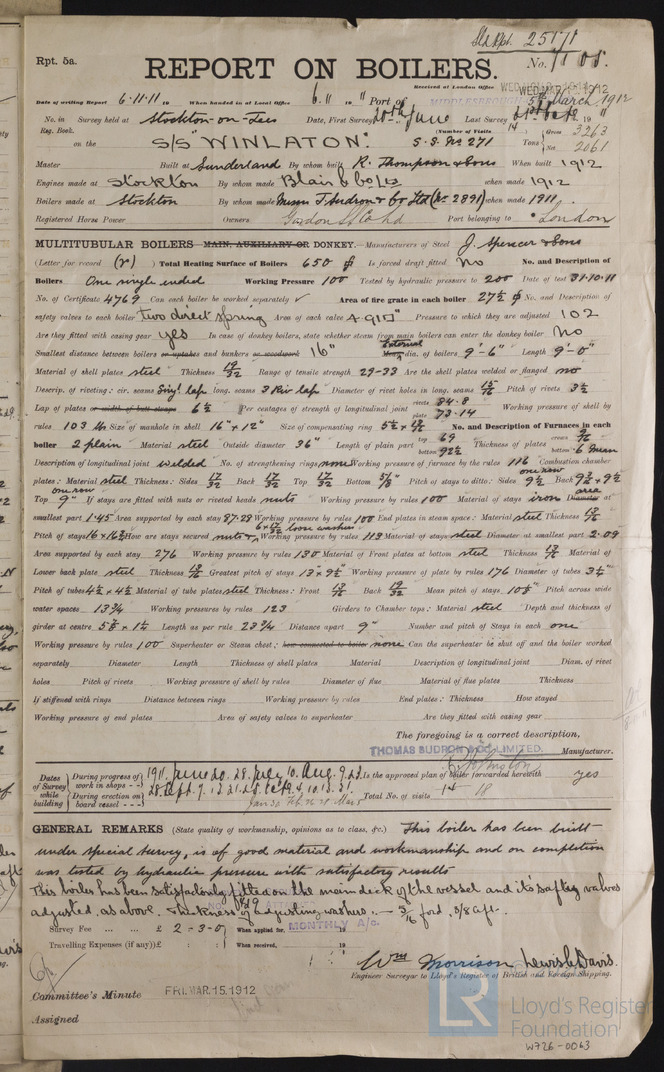 Sld Rpt. 25171
Rpt. 5a.
No. 
REPORT ON BOILERS.
Received at London Office WED. MAR. 1912
Date of writing Report 6.11.11 19 When handed in at Local Office 6.11 19 11 Port of MIDDLESBROUGH 5th March 1912
No. in Survey held at Stockton-on-Tees Date, First Survey 20th June Last Survey 19 11
Reg. Book. (Number of Visits 14) Gross 3263
on the S/S "WINLATON." S.S. No 271 Tons Net 2061
Master Built at Sunderland By whom built R. Thompson & Sons When built 1912
Engines made at Stockton By whom made Blair & Co Ltd when made 1912
Boilers made at Stockton By whom made Messrs T. Sudron & Co Ltd (No 2891) when made 1911.
Registered Horse Power Owners Port belonging to London
MULTITUBULAR BOILERS MAIN, AUXILIARY OR DONKEY.—Manufacturers of Steel J. Spencer & Sons
(Letter for record (r)) Total Heating Surface of Boilers 650 Is forced draft fitted No No. and Description of
Boilers One single ended Working Pressure 100 Tested by hydraulic pressure to 200 Date of test 31.10.11
No. of Certificate 4769 Can each boiler be worked separately Area of fire grate in each boiler 27½ No. and Description of
safety valves to each boiler two direct spring Area of each valve Pressure to which they are adjusted 102
Are they fitted with easing gear yes In case of donkey boilers, state whether steam from main boilers can enter the donkey boiler No
Smallest distance between boilers or uptakes and bunkers or woodwork 16" External Mean dia. of boilers 9'-6" Length 9'-0"
Material of shell plates steel Thickness 19/32 Range of tensile strength 29-33 Are the shell plates welded or flanged no
Descrip. of riveting: cir. seams Singl lap long. seams 3 Riv lap Diameter of rivet holes in long. seams 15/16 Pitch of rivets 3½
Lap of plates or width of butt straps 6½ Per centages of strength of longitudinal joint rivets 84.8 plate 73.14 Working pressure of shell by
rules 103 lb Size of manhole in shell 16" x 12" Size of compensating ring No. and Description of Furnaces in each
boiler 2 plain Material steel Outside diameter 36" Length of plain part top 69 bottom 92½ Thickness of plates crown bottom
Description of longitudinal joint welded No. of strengthening rings none Working pressure of furnace by the rules 116 Combustion chamber
plates: Material steel Thickness: Sides 17/32 Back 17/32 Top 17/32 Bottom 5/8" Pitch of stays to ditto: Sides 9½ Back 9½ x 9½
Top one row 9" If stays are fitted with nuts or riveted heads nuts Working pressure by rules 100 Material of stays iron Diameter at area
smallest part 1.45 Area supported by each stay 87.28 Working pressure by rules 100 End plates in steam space: Material steel Thickness 13/16
Pitch of stays 16 x 16½ How are stays secured nuts & Working pressure by rules 113 Material of stays steel Diameter at smallest part 2.09
Area supported by each stay 276 Working pressure by rules 130 Material of Front plates at bottom steel Thickness 13/16 Material of
Lower back plate steel Thickness 13/16 Greatest pitch of stays 13" x 9½" Working pressure of plate by rules 176 Diameter of tubes 3½"
Pitch of tubes 4½ x 4½ Material of tube plates steel Thickness: Front 13/16 Back 19/32 Mean pitch of stays Pitch across wide
water spaces 13¾ Working pressures by rules 123 Girders to Chamber tops: Material steel Depth and thickness of
girder at centre Length as per rule 23¾ Distance apart 9" Number and pitch of Stays in each one
Working pressure by rules 100 Superheater or Steam chest; how connected to boiler none Can the superheater be shut off and the boiler worked
separately Diameter Length Thickness of shell plates Material Description of longitudinal joint Diam. of rivet
holes Pitch of rivets Working pressure of shell by rules Diameter of flue Material of flue plates Thickness
If stiffened with rings Distance between rings Working pressure by rules End plates: Thickness How stayed
Working pressure of end plates Area of safety valves to superheater Are they fitted with easing gear
The foregoing is a correct description,
THOMAS SUDRON & CO. LIMITED. Manufacturer.
Dates of Survey while building
During progress of work in shops - - 1911. June 20. 28. July 10. Aug. 9. 23. Is the approved plan of boiler forwarded herewith yes
During erection on board vessel - - - Total No. of visits 18
Jan 30 Feb. 16 28 Mar 5
GENERAL REMARKS (State quality of workmanship, opinions as to class, &c.) This boiler has been built
under special survey, is of good material and workmanship and on completion
was tested by hydraulic pressure with satisfactory results
This boiler has been satisfactorily fitted on the main deck of the vessel and its safety valves
adjusted, as above. Thickness of adjusting washers:— 5/16 ford, 3/8 aft.
Survey Fee ... ... £ 2-3-0 When applied for, MONTHLY A/c. 19
Travelling Expenses (if any) £ : : When received, 19
Wm Morrison Lewis Davis.
Engineer Surveyor to Lloyd's Register of British and Foreign Shipping.
Committee's Minute FRI. MAR. 15. 1912
Assigned
LR Lloyd's Register Foundation
W726-0063